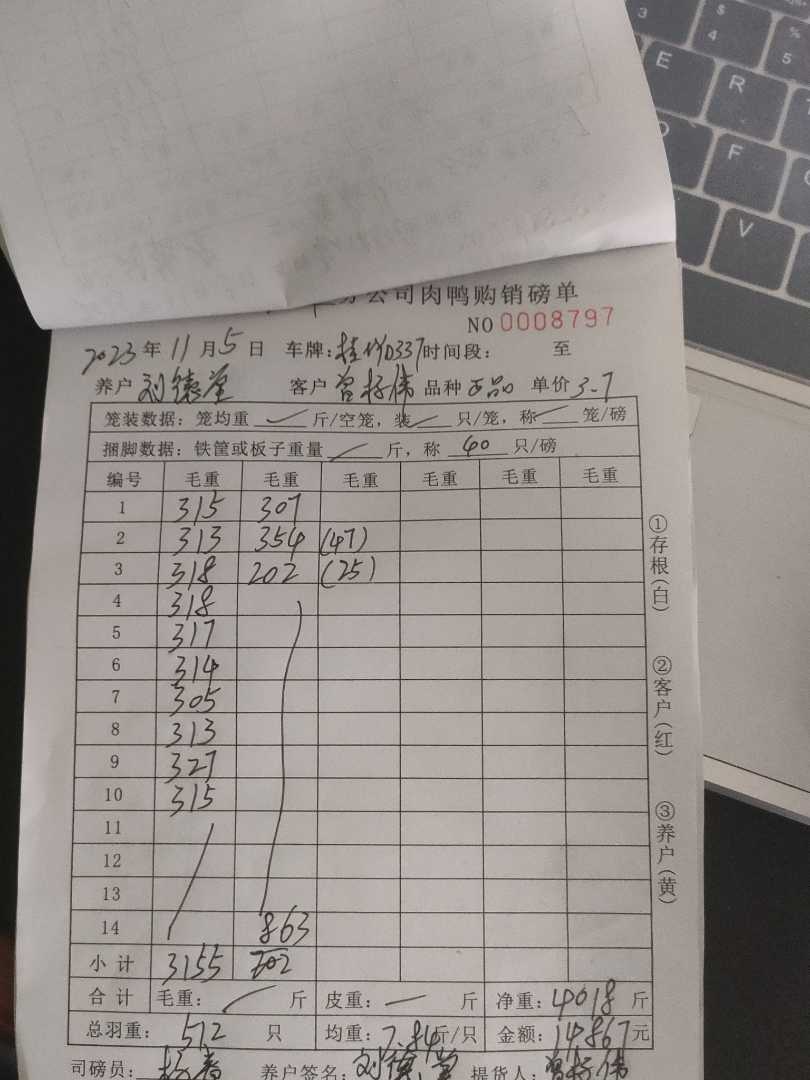 公司肉鸭购销磅单
NO 0008797
2023 年 11 月 5 日 车牌: 桂 D337 时间段: 至
养户 刘德 客户 曾标伟 品种 正品 单价 3.7
笼装数据: 笼均重 斤/空笼, 装 只/笼, 称 笼/磅
捆脚数据: 铁筐或板子重量 斤, 称 40 只/磅
编号 毛重 毛重 毛重 毛重 毛重 毛重
1 315 307
2 313 354 (47)
3 318 202 (25)
4 318
5 317
6 314
7 305
8 313
9 327
10 315
11
12
13
14 863
小计 3155
合计 毛重: 斤 皮重: 斤 净重: 4018 斤
总羽重: 512 只 均重: 7.84 斤/只 金额: 14867 元
司磅员: 杨 养户签名: 刘德 提货人: 曾标伟
①存根(白)
②客户(红)
③养户(黄)
3
$
4
%
5
E
R
D
F
V